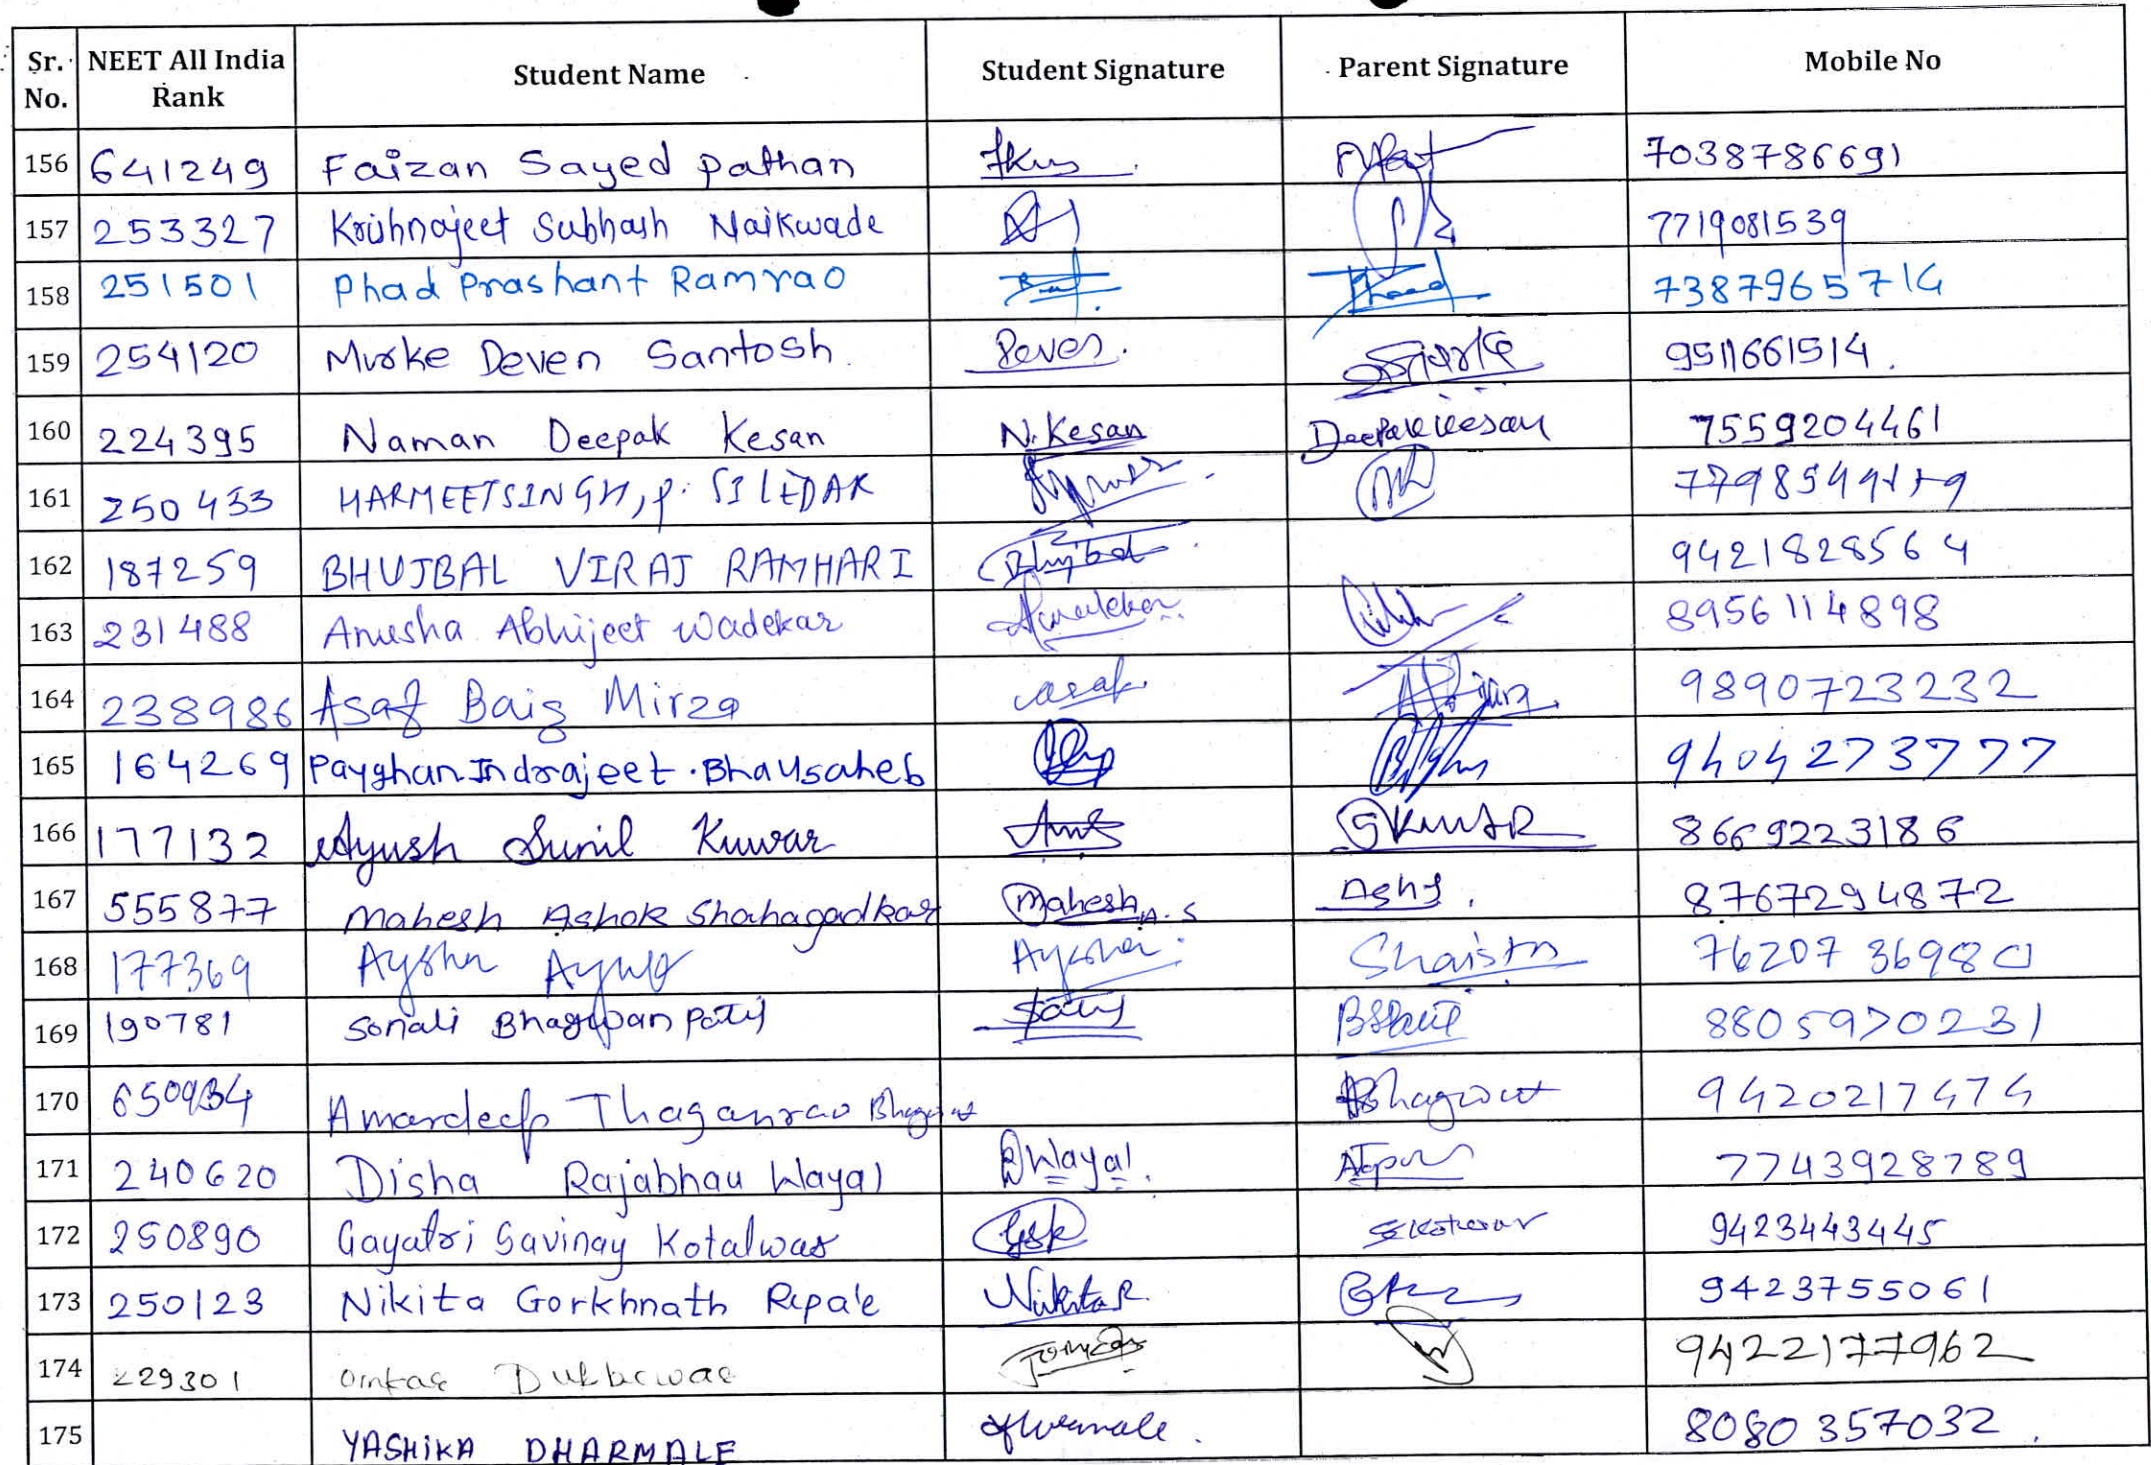 Sr. No. NEET All India Rank Student Name Student Signature Parent Signature Mobile No
156 641249 Faizan Sayed pathan 7038786691
157 253327 Krishnajeet Subhash Naikwade 7719081539
158 251501 Phad Prashant Ramrao 7387965714
159 254120 Murke Deven Santosh Deven. 9511661514.
160 224395 Naman Deepak Kesan N.Kesan Deepak Kesan 7559204461
161 250433 HARMEETSINGH, P. SILEDAR
162 187259 BHUJBAL VIRAJ RAMHARI Bhujbal 9421828564
163 231488 Anusha Abhijeet Wadekar Awadekar 8956114898
164 238986 Asaf Baig Mirza asaf 9890723232
165 164269 Payghan Indrajeet. Bhausaheb 9404273777
166 177132 Ayush Sunil Kuwar 8669223186
167 555877 Mahesh Ashok Shahagadkar Mahesh A.S 8767294872
168 177369 Aysha Ayesha Shaista 7620736980
169 190781 Sonali Bhagwan Patil BSPatil 8805970231
170 Amardeep Thaganrao Bhagwat Bhagwat 9420217474
171 240620 Disha Rajabhau Wayal DWayal. 7743928789
172 250890 Gayatri Savinay Kotalwar GSK 9423443445
173 250123 Nikita Gorkhnath Repale Nikita R. 9423755061
174 229301 Omkar 9422177962
175 YASHIKA DHARMALE 8080357032.